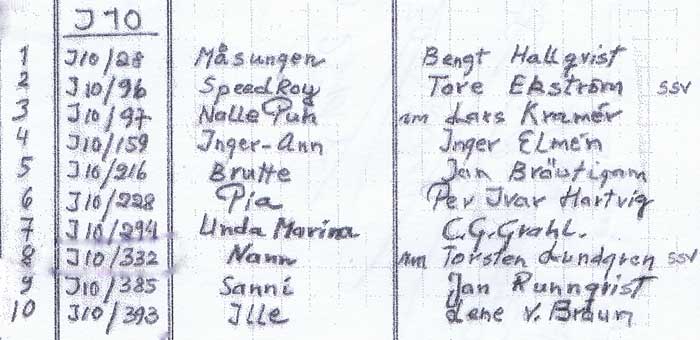 J10
1 J10/28 Måsungen Bengt Hallqvist
2 J10/96 SpeedRoy Tore Ekström SSV
3 J10/97 Nalle Puh nm Lars Kramér
4 J10/159 Inger-Ann Inger Elmén
5 J10/216 Brutte Jan Bräutigam
6 J10/228 Pia Per Ivar Hartvig
7 J10/294 Unda Marina C.G. Grahl.
8 J10/332 Nann nm Torsten Lundgren SSV
9 J10/385 Sanni Jan Runnqvist
10 J10/393 Ille Lene v. Braun